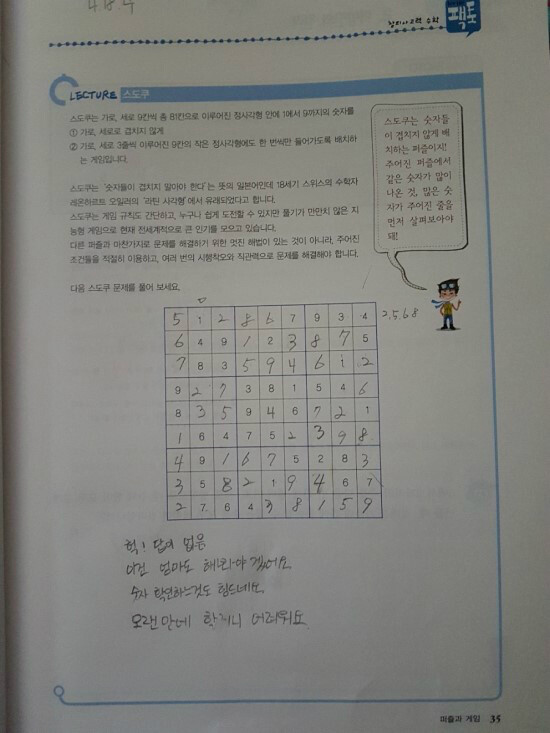 4.8.4
창의사고력 수학
팩토
LECTURE 스도쿠
스도쿠는 가로, 세로 9칸씩 총 81칸으로 이루어진 정사각형 안에 1에서 9까지의 숫자를
① 가로, 세로로 겹치지 않게
② 가로, 세로 3줄씩 이루어진 9칸의 작은 정사각형에도 한 번씩만 들어가도록 배치하
는 게임입니다.
스도쿠는 '숫자들이 겹치지 말아야 한다'는 뜻의 일본어인데 18세기 스위스의 수학자
레온하르트 오일러의 '라틴 사각형'에서 유래되었다고 합니다.
스도쿠는 게임 규칙도 간단하고, 누구나 쉽게 도전할 수 있지만 풀기가 만만치 않은 지
능형 게임으로 현재 전세계적으로 큰 인기를 모으고 있습니다.
다른 퍼즐과 마찬가지로 문제를 해결하기 위한 멋진 해법이 있는 것이 아니라, 주어진
조건들을 적절히 이용하고, 여러 번의 시행착오와 직관력으로 문제를 해결해야 합니다.
스도쿠는 숫자들
이 겹치지 않게 배
치하는 퍼즐이지!
주어진 퍼즐에서
같은 숫자가 많이
나온 것, 많은 숫
자가 주어진 줄을
먼저 살펴보아야
돼!
다음 스도쿠 문제를 풀어 보세요.
5 1 2 8 6 7 9 3 4
2.5.6.8
6 4 9 1 2 3 8 7 5
7 8 3 5 9 4 6 1 2
9 2 7 3 8 1 5 4 6
8 3 5 9 4 6 7 2 1
1 6 4 7 5 2 3 9 8
4 9 1 6 7 5 2 8 3
3 5 8 2 1 9 4 6 7
2 7 6 4 3 8 1 5 9
헉! 답이 없음
이건 엄마도 해봐야 겠어요
숫자 확인하는것도 힘드네요
오랜만에 할려니 어려워요
퍼즐과 게임 35